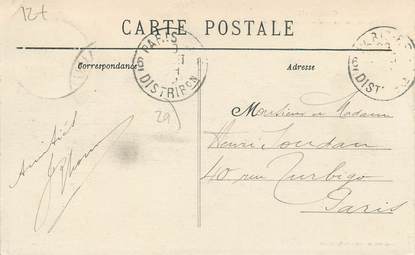 12t
CARTE POSTALE
Correspondance
Adresse
PARIS
DISTRIBON
PARIS
DIST
29
Amitiés
Monsieur et Madame
Henri Jourdan
40 rue Turbigo
Paris